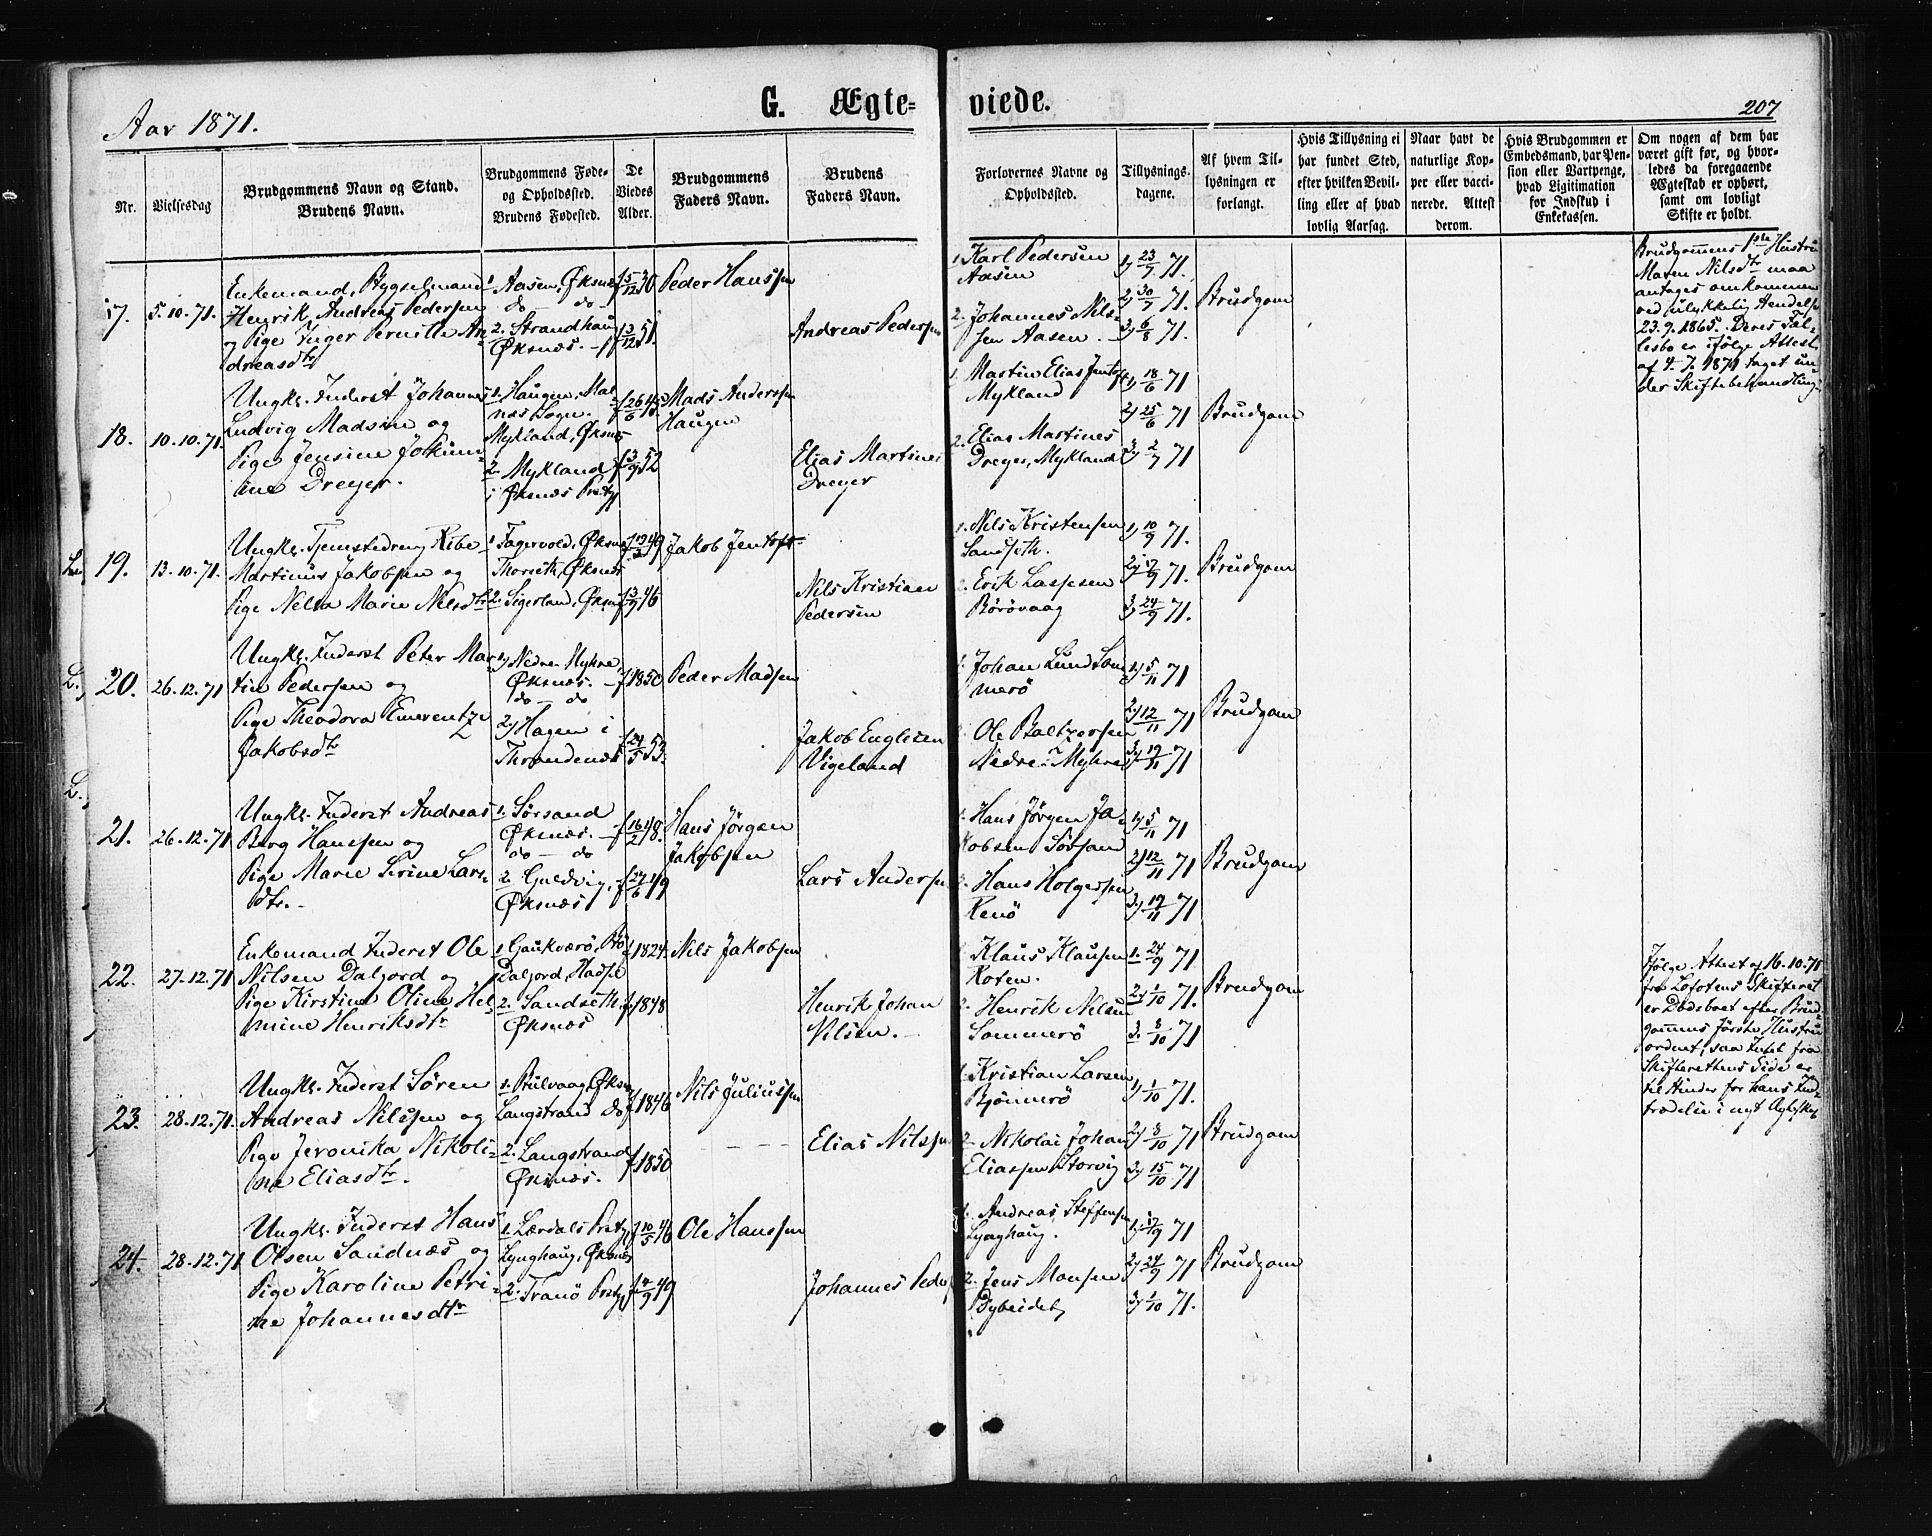 Aar 1871.
G. Ægte-
viede.
207
Nr.
Vielsesdag
Brudgommens Navn og Stand.
Brudens Navn.
Brudgommens Føde-
og Opholdssted.
Brudens Fødested.
De
Viedes
Alder.
Brudgommens
Faders Navn.
Brudens
Faders Navn.
Forlovernes Navne og
Opholdssted.
Tillysnings-
dagene.
Af hvem Til-
lysningen er
forlangt.
Hvis Tillysning ei
har fundet Sted,
efter hvilken Bevil-
ling eller af hvad
lovlig Aarsag.
Naar havt de
naturlige Kop-
per eller vacci-
nerede. Attest
derom.
Hvis Brudgommen er
Embedsmand, har Pen-
sion eller Vartpenge,
hvad Ligitimation
for Indskud i
Enkekassen.
Om nogen af dem har
været gift før, og hvor-
ledes da foregaaende
Ægteskab er ophørt,
samt om lovligt
Skifte er holdt.
17.
5.10.71.
Enkemand, Bygselmand
Henrik Andreas Pedersen
og Pige Inger Pernille An-
dreasdtr
1. Aasen, Øksnæs
do — do —
2. Strandhaug
Øksnæs.
f 5/12 30
f 13/12 51.
Peder Hanssen
Andreas Pedersen
1. Karl Pedersen
Aasen
2. Johannes Nils-
sen Aasen.
1) 23/7 71.
2) 30/7 71.
3) 6/8 71.
Brudgom
Brudgommens 1ste Hustru
Maren Nilsdtr maa
antages omkommen
ved ulykkelig Hændelse
23.9.1865. Deres Fæl-
lesbo er ifølge Attest
af 4.7.1871 taget un-
der Skiftebehandling.
18.
10.10.71.
Ungkl. Inderst Johannes
Ludvig Madsen og
Pige Jensine Jokumi-
ne Dreyer.
1. Haugen, Mal-
næs Sogn.
Mykland, Øksnæs
2. Mykland
i Øksnæs Prstgj
f 26/6 45
f 13/9 52
Mads Anderssen
Haugen
Elias Martines
Dreyer
1. Martin Elias Jentoft
Mykland
2. Elias Martines
Dreyer, Mykland
1) 18/6 71
2) 25/6 71
3) 2/7 71
Brudgom
19.
13.10.71.
Ungkl. Tjenestedreng Ribe
Martinus Jakobsen og
Pige Nelsa Marie Nilsdtr
1 Fagervold, Øksnæs
Thorseth, Øksnæs
2. Sigerland, Øksnæs
Jakob Jentoft
Nils Kristian
Pedersen
1. Nils Kristensen
Sandseth.
2. Erik Lassesen
Børøvaag
1) 10/9 71.
2) 17/9 71.
3) 24/9 71.
Brudgom
L.
20.
26.12.71
Ungkl. Inderst Peter Mar-
tin Pedersen og
Pige Theodora Emerentze
Jakobsdtr
1) Nedre-Myhre,
Øksnæs.
do — do
2) Hagen i
Throndenæs
f 1850
f 24/5 53.
Peder Madsen
Jakob Englesen
Vigeland
1. Johan Lund Som-
merø
Ole Baltzersen
Nedre-Myhre
1) 5/11 71
2) 12/11 71
3) 19/11 71
Brudgom
L.
21.
26.12.71
Ungkl. Inderst Andreas
Berg Hanssen og
Pige Marie Serine Lars-
dtr.
1. Sørsand
Øksnæs.
do — do
2. Guldvig,
Øksnæs
f 16/2 48.
f 27/6 49
Hans Jørgen
Jakobsen
Lars Andersen
1. Hans Jørgen Ja-
kobsen Sørsand
2. Hans Holgersen
Renø
1) 5/11 71
2) 12/11 71
3) 19/11 71
Brudgom
22.
27.12.71
Enkemand Inderst Ole
Nilsen Daljord og
Pige Kirstine Oline Hel-
mine Henriksdtr
1 Gaukværø, Bø
Daljord, Hadsel
2. Sandseth
Øksnæs
f 1824.
f. 1848
Nils Jakobsen
Henrik Johan
Nilsen.
1. Klaus Klausen
Roten.
2. Henrik Nilsen
Sommerø
1. 24/9 71
2) 1/10 71.
3. 8/10 71
Brudgom
Ifølge Attest af 16.10.71
fra Lofotens Skifteret
er Dødsboet efter Brud-
gommens første Hustru
ordnet, saa Intet fra
Skifterettens Side er
til Hinder for hans Ind-
trædelse i nyt Ægteskab
23.
28.12.71.
Ungkl. Inderst Søren
Andreas Nilssen og
Pige Jeronika Nikoli-
ne Eliasdtr.
1. Bulvaag, Øksnæs
Langstrand do
2. Langstrand
Øksnæs.
f 1846
f 1850
Nils Juliussen
Elias Nilssen
1. Kristian Larsen
Bjønnerø
2. Nikolai Johan
Eliassen Storvig
1) 1/10 71.
2) 8/10 71
3) 15/10 71
Brudgom
24.
28.12.71
Ungkl. Inderst Hans
Olsen Sandnæs og
Pige Karoline Petri-
ne Johannesdtr
1. Lærdals Prstgj,
Lynghaug, Øksnæs
2. Tranø Prstgj
f 10/5 46
f 4/9 49
Ole Hanssen
Johannes Peders
1. Andreas Steffensen
Lynghaug.
2. Jens Monsen
Dybeidet
1) 17/9 71
2) 24/9 71
3) 1/10 71.
Brudgom